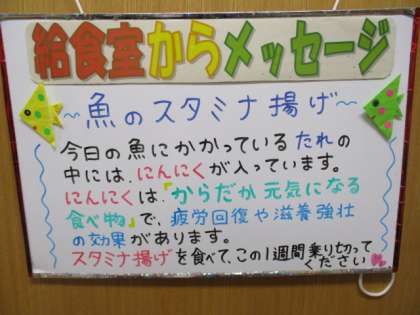 給食室からメッセージ
~魚のスタミナ揚げ~
今日の魚にかかっているたれの
中には、にんにくが入っています。
にんにくは、『からだが元気になる
食べ物』で、疲労回復や滋養強壮
の効果があります。
スタミナ揚げを食べて、この1週間乗り切って
ください